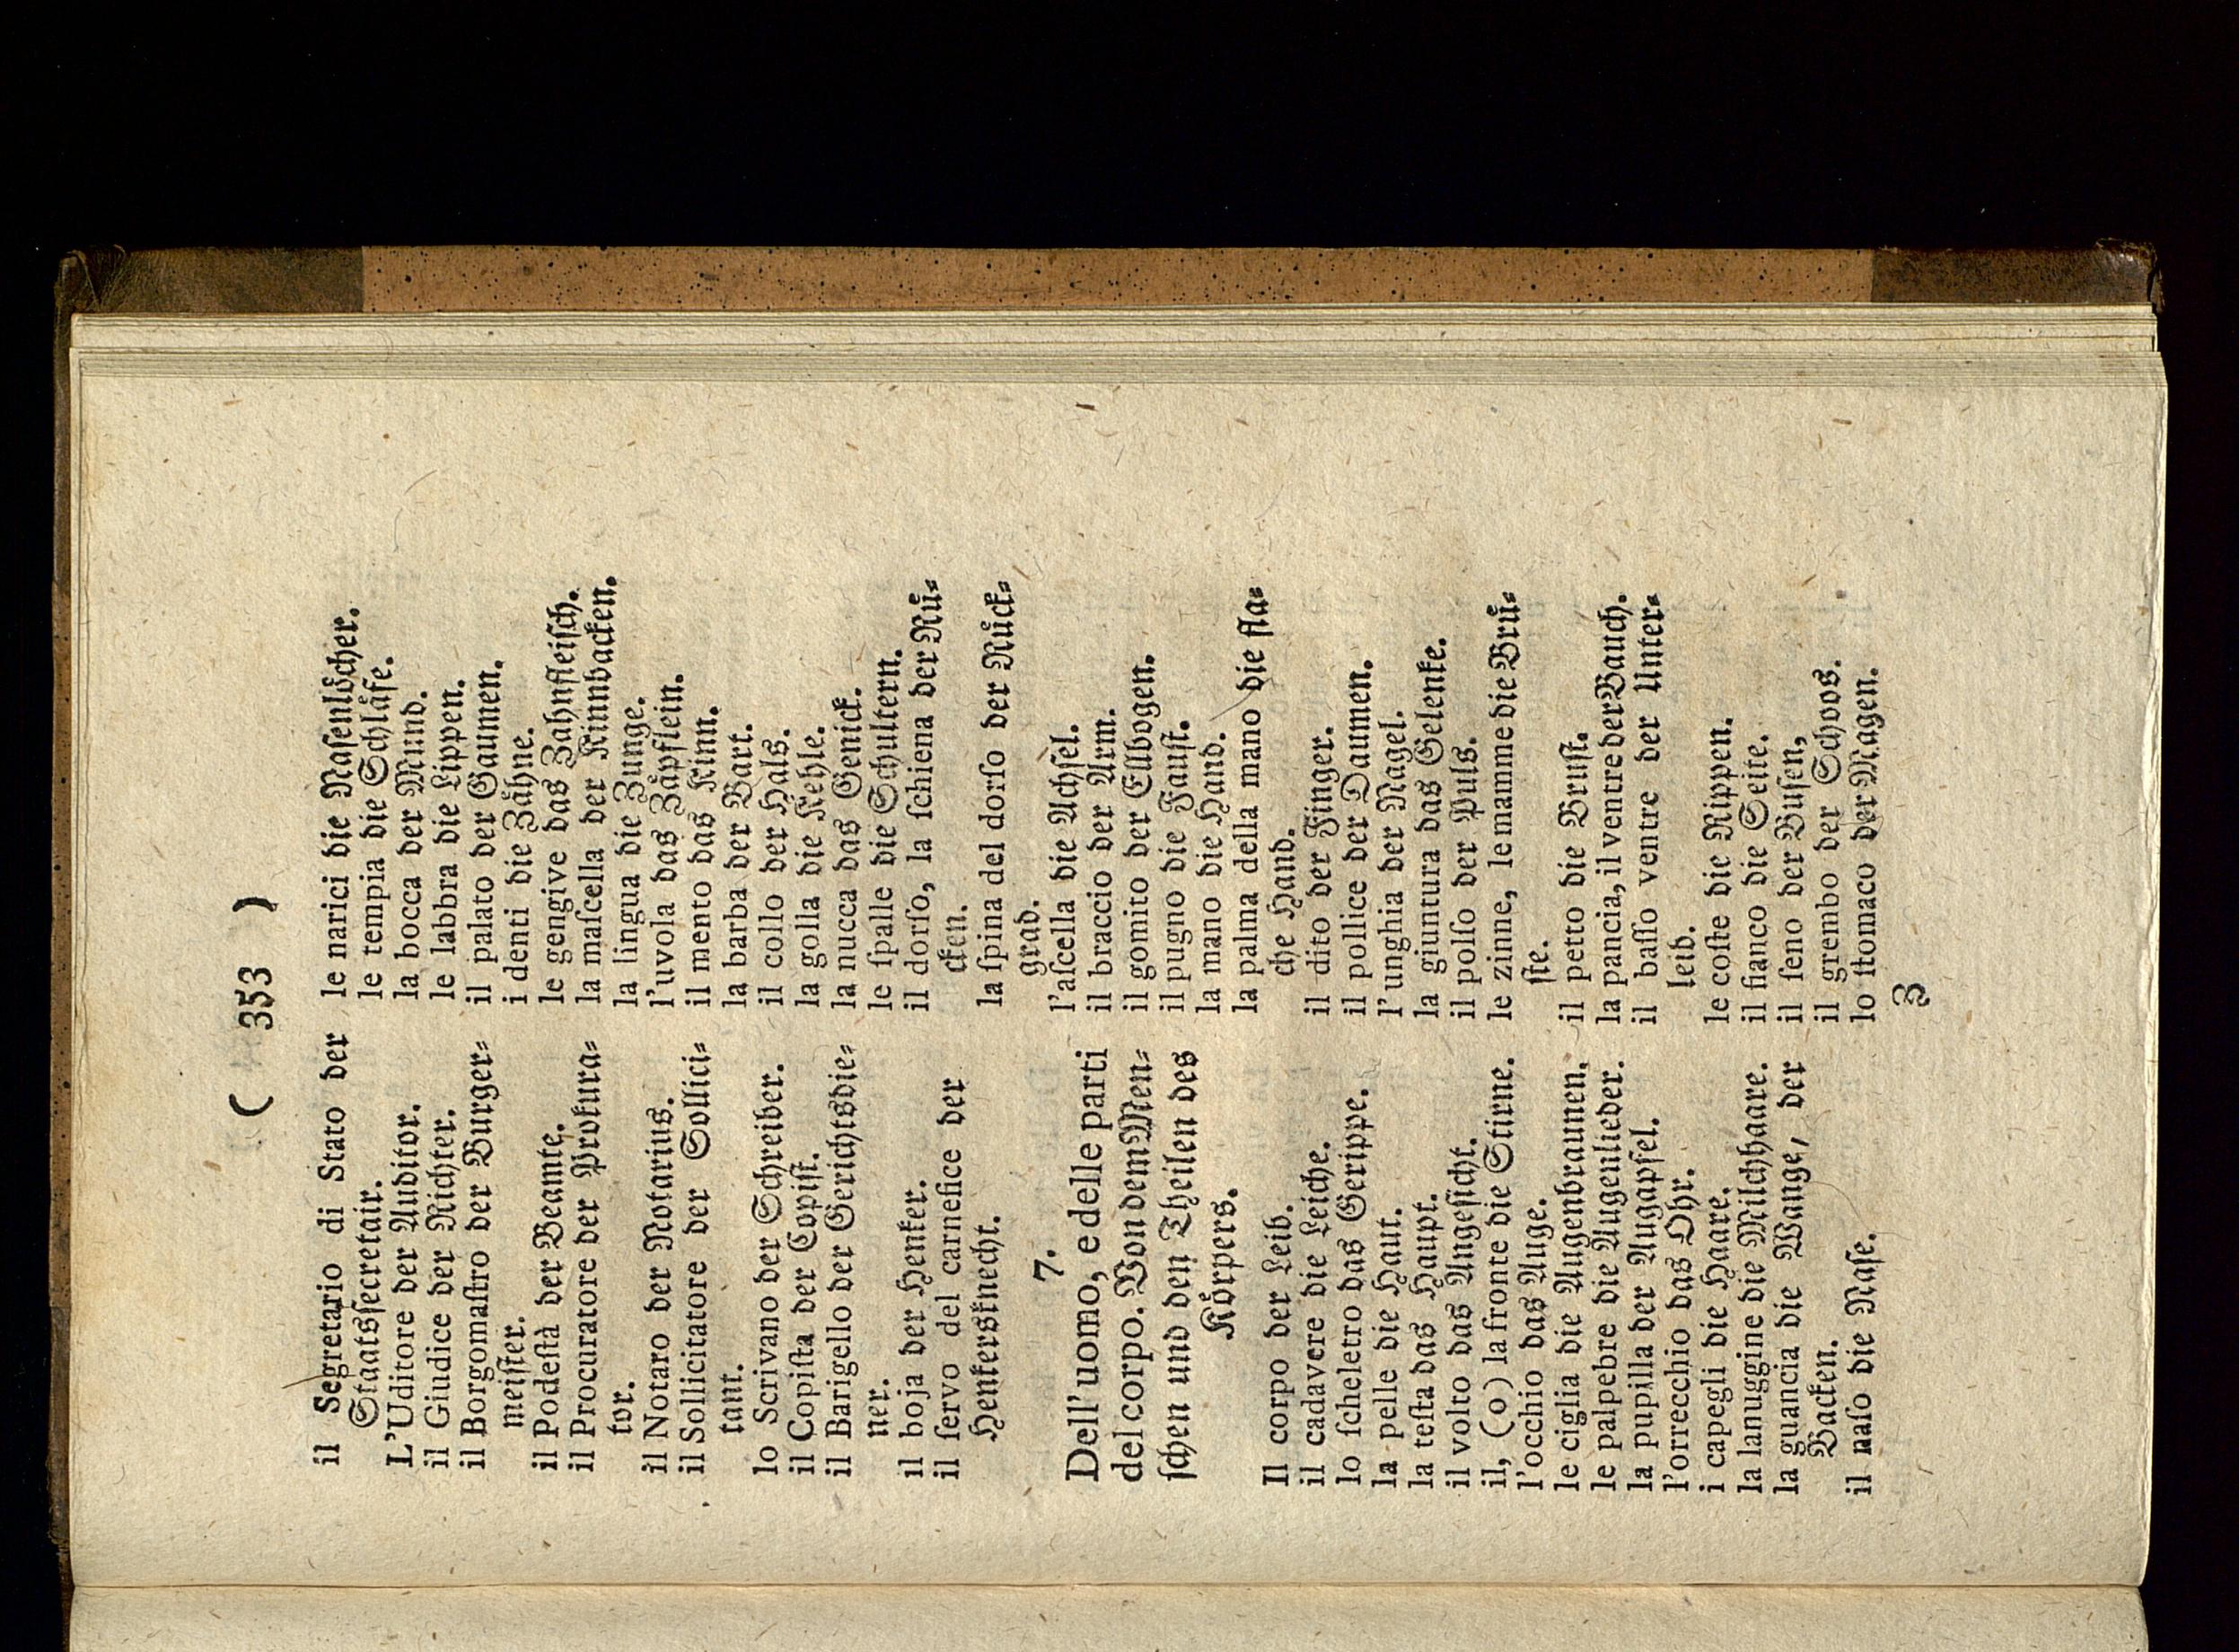 ( 353 )
il Segretario di Stato der
Staatsſecretair.
L'Uditore der Auditor.
il Giudice der Richter.
il Borgomaſtro der Burger⸗
meiſter.
il Podeſtà der Beamte.
il Procuratore der Prokura⸗
tor.
il Notaro der Notarius.
il Sollicitatore der Sollici⸗
tant.
lo Scrivano der Schreiber.
il Copiſta der Copiſt.
il Barigello der Gerichtsdie⸗
ner.
il boja der Henker.
il ſervo del carnefice der
Henkersknecht.
7.
Dell' uomo, e delle parti
del corpo. Von dem Men⸗
ſchen und den Theilen des
Koͤrpers.
Il corpo der Leib.
il cadavere die Leiche.
lo ſcheletro das Gerippe.
la pelle die Haut.
la teſta das Haupt.
il volto das Angeſicht.
il, (o) la fronte die Stirne.
l'occhio das Auge.
le ciglia die Augenbraunen.
le palpebre die Augenlieder.
la pupilla der Augapfel.
l'orrecchio das Ohr.
i capegli die Haare.
la lanuggine die Milchhaare.
la guancia die Wange, der
Backen.
il naſo die Naſe.
le narici die Naſenloͤcher.
le tempia die Schlaͤfe.
la bocca der Mund.
le labbra die Lippen.
il palato der Gaumen.
i denti die Zaͤhne.
le gengive das Zahnfleiſch.
la maſcella der Kinnbacken.
la lingua die Zunge.
l'uvola das Zaͤpflein.
il mento das Kinn.
la barba der Bart.
il collo der Hals.
la golla die Kehle.
la nucca das Genick.
le ſpalle die Schultern.
il dorſo, la ſchiena der Ruͤ⸗
cken.
la ſpina del dorſo der Ruͤck⸗
grad.
l'aſcella die Achſel.
il braccio der Arm.
il gomito der Ellbogen.
il pugno die Fauſt.
la mano die Hand.
la palma della mano die fla⸗
che Hand.
il dito der Finger.
il pollice der Daumen.
l'unghia der Nagel.
la giuntura das Gelenke.
il polſo der Puls.
le zinne, le mamme die Bruͤ⸗
ſte.
il petto die Bruſt.
la pancia, il ventre der Bauch.
il baſſo ventre der Unter⸗
leib.
le coſte die Rippen.
il fianco die Seite.
il ſeno der Buſen,
il grembo der Schoos.
lo ſtomaco der Magen.
Z